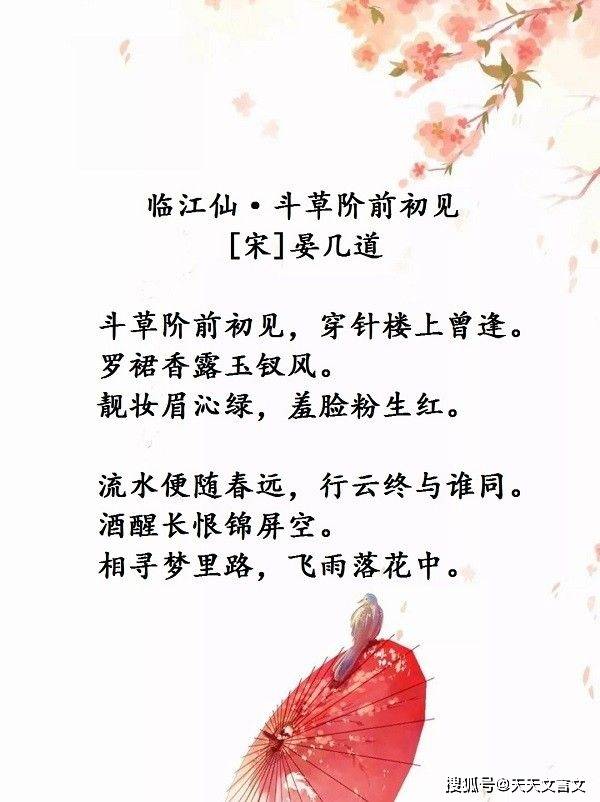 临江仙·斗草阶前初见
[宋]晏几道
斗草阶前初见，穿针楼上曾逢。
罗裙香露玉钗风。
靓妆眉沁绿，羞脸粉生红。
流水便随春远，行云终与谁同。
酒醒长恨锦屏空。
相寻梦里路，飞雨落花中。
搜狐号@天天文言文